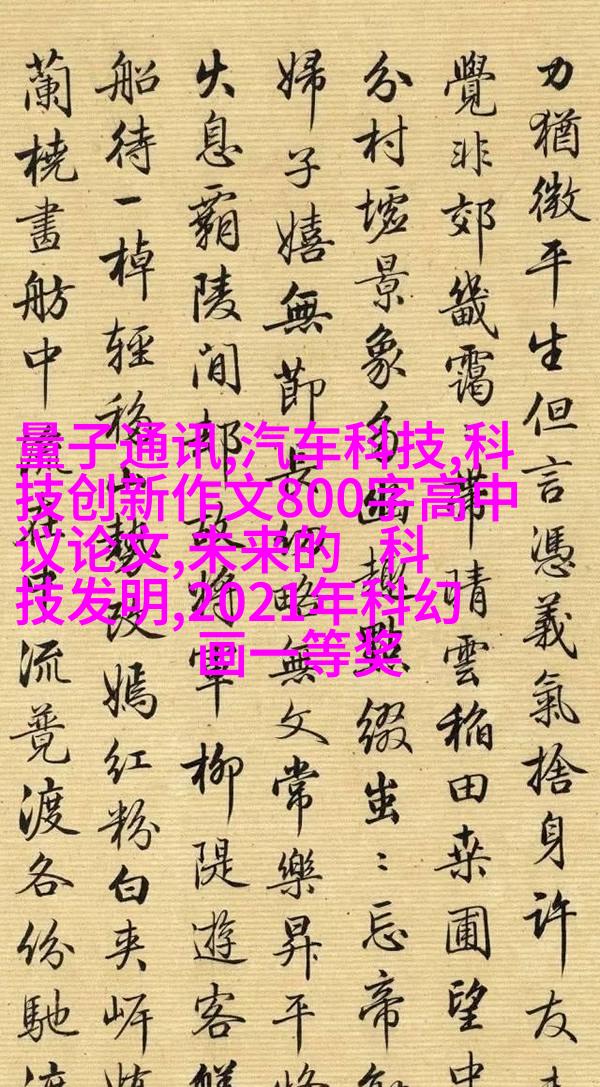 量子通讯,汽车科技,科
技创新作文800字高中
议论文,未来的 科
技发明,2021年科幻
画一等奖
力猶微平生但言憑義氣捨身許友
覺非郊畿靄帶晴雲稻田桑圃望中
分村墟景象多幽趣點綴出〻忘帝
婦子嬉無節略無文常樂昇平
息霸陵間却將軍柳隄遊客
船待一棹輕移勢改嫣紅粉白夾岍
蘭橈畫舫中流覽渡各份馳